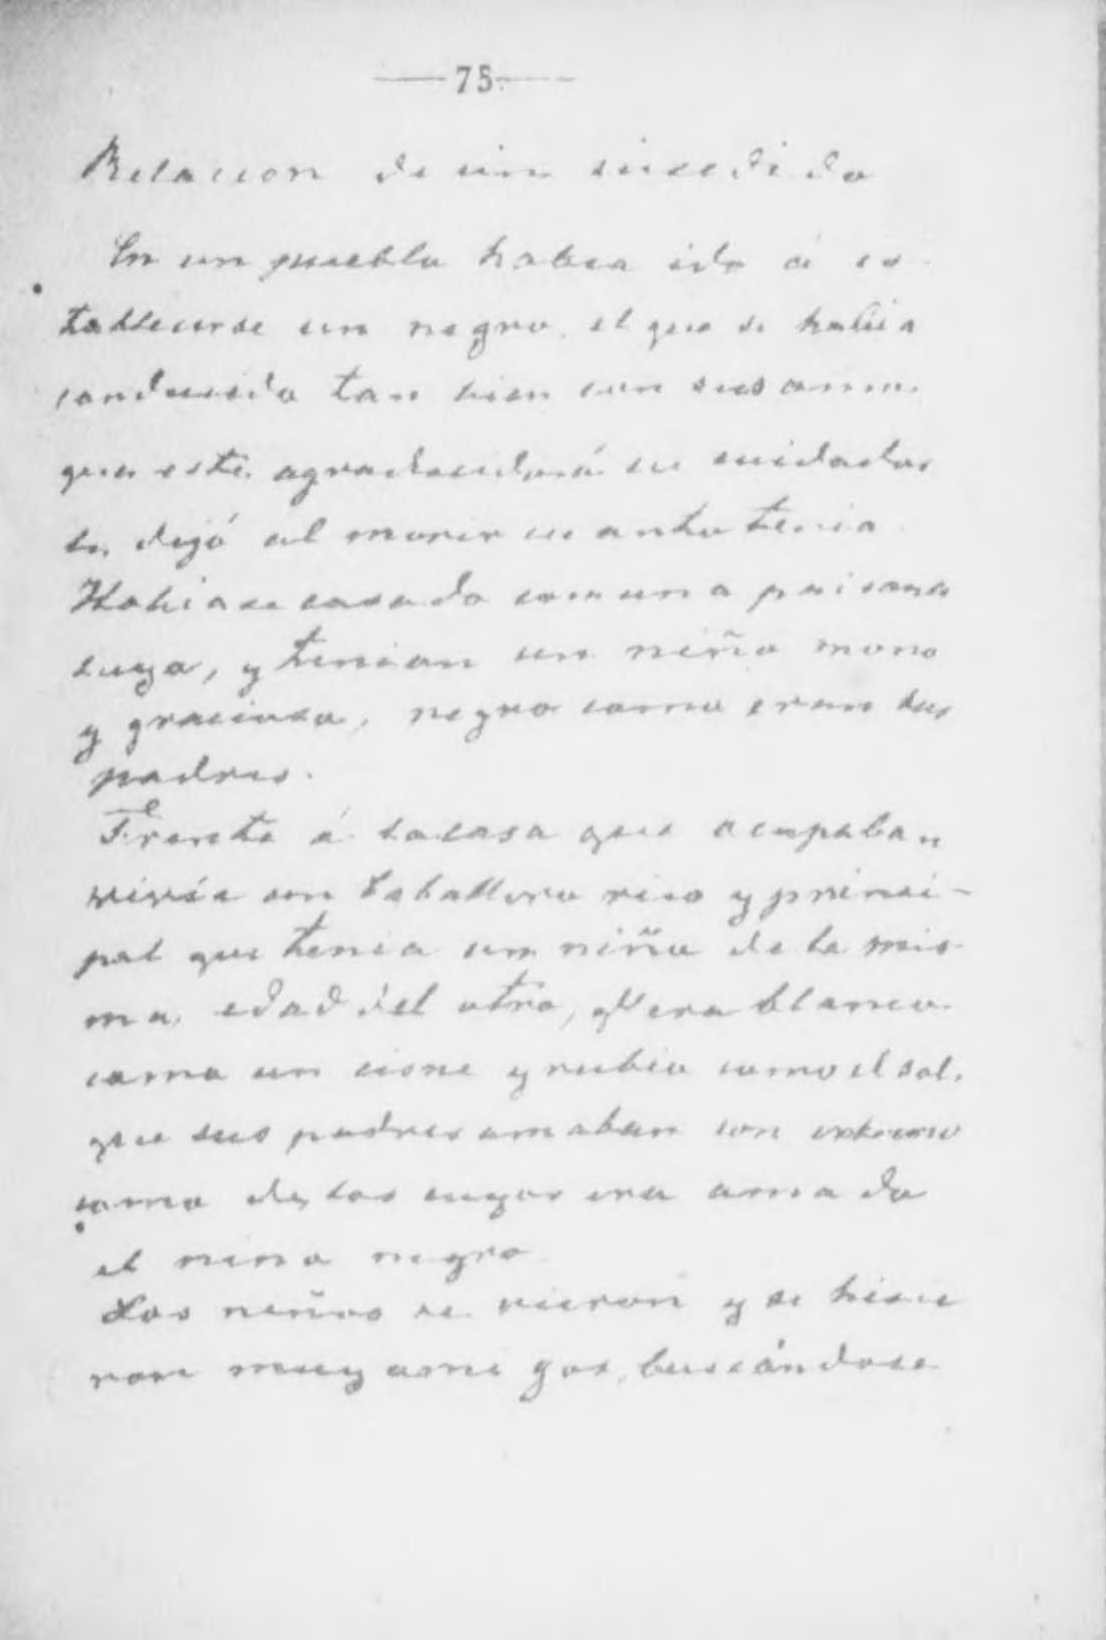 75
Relacion de un sucedido
En un pueblo habia ido á es-
tablecerse un negro, el que se habia
conducido tan bien con sus amo
que este, agradeciendo su cuidados
le dejó al morir cuanto tenia.
Habiase casado con una paisana
suya, y tenian un niño mono
y gracioso, negro como eran sus
padres.
Frente á la casa que ocupaban
vivía un Caballero rico y princi-
pal que tenia un niño de la mis-
ma edad del otro, era blanco
como un cisne y rubio como el sol,
que sus padres amaban con extremo
como de los suyos era amado
el nino negro
Los niños se vieron y se hicie
ron muy ami gos, buscándose